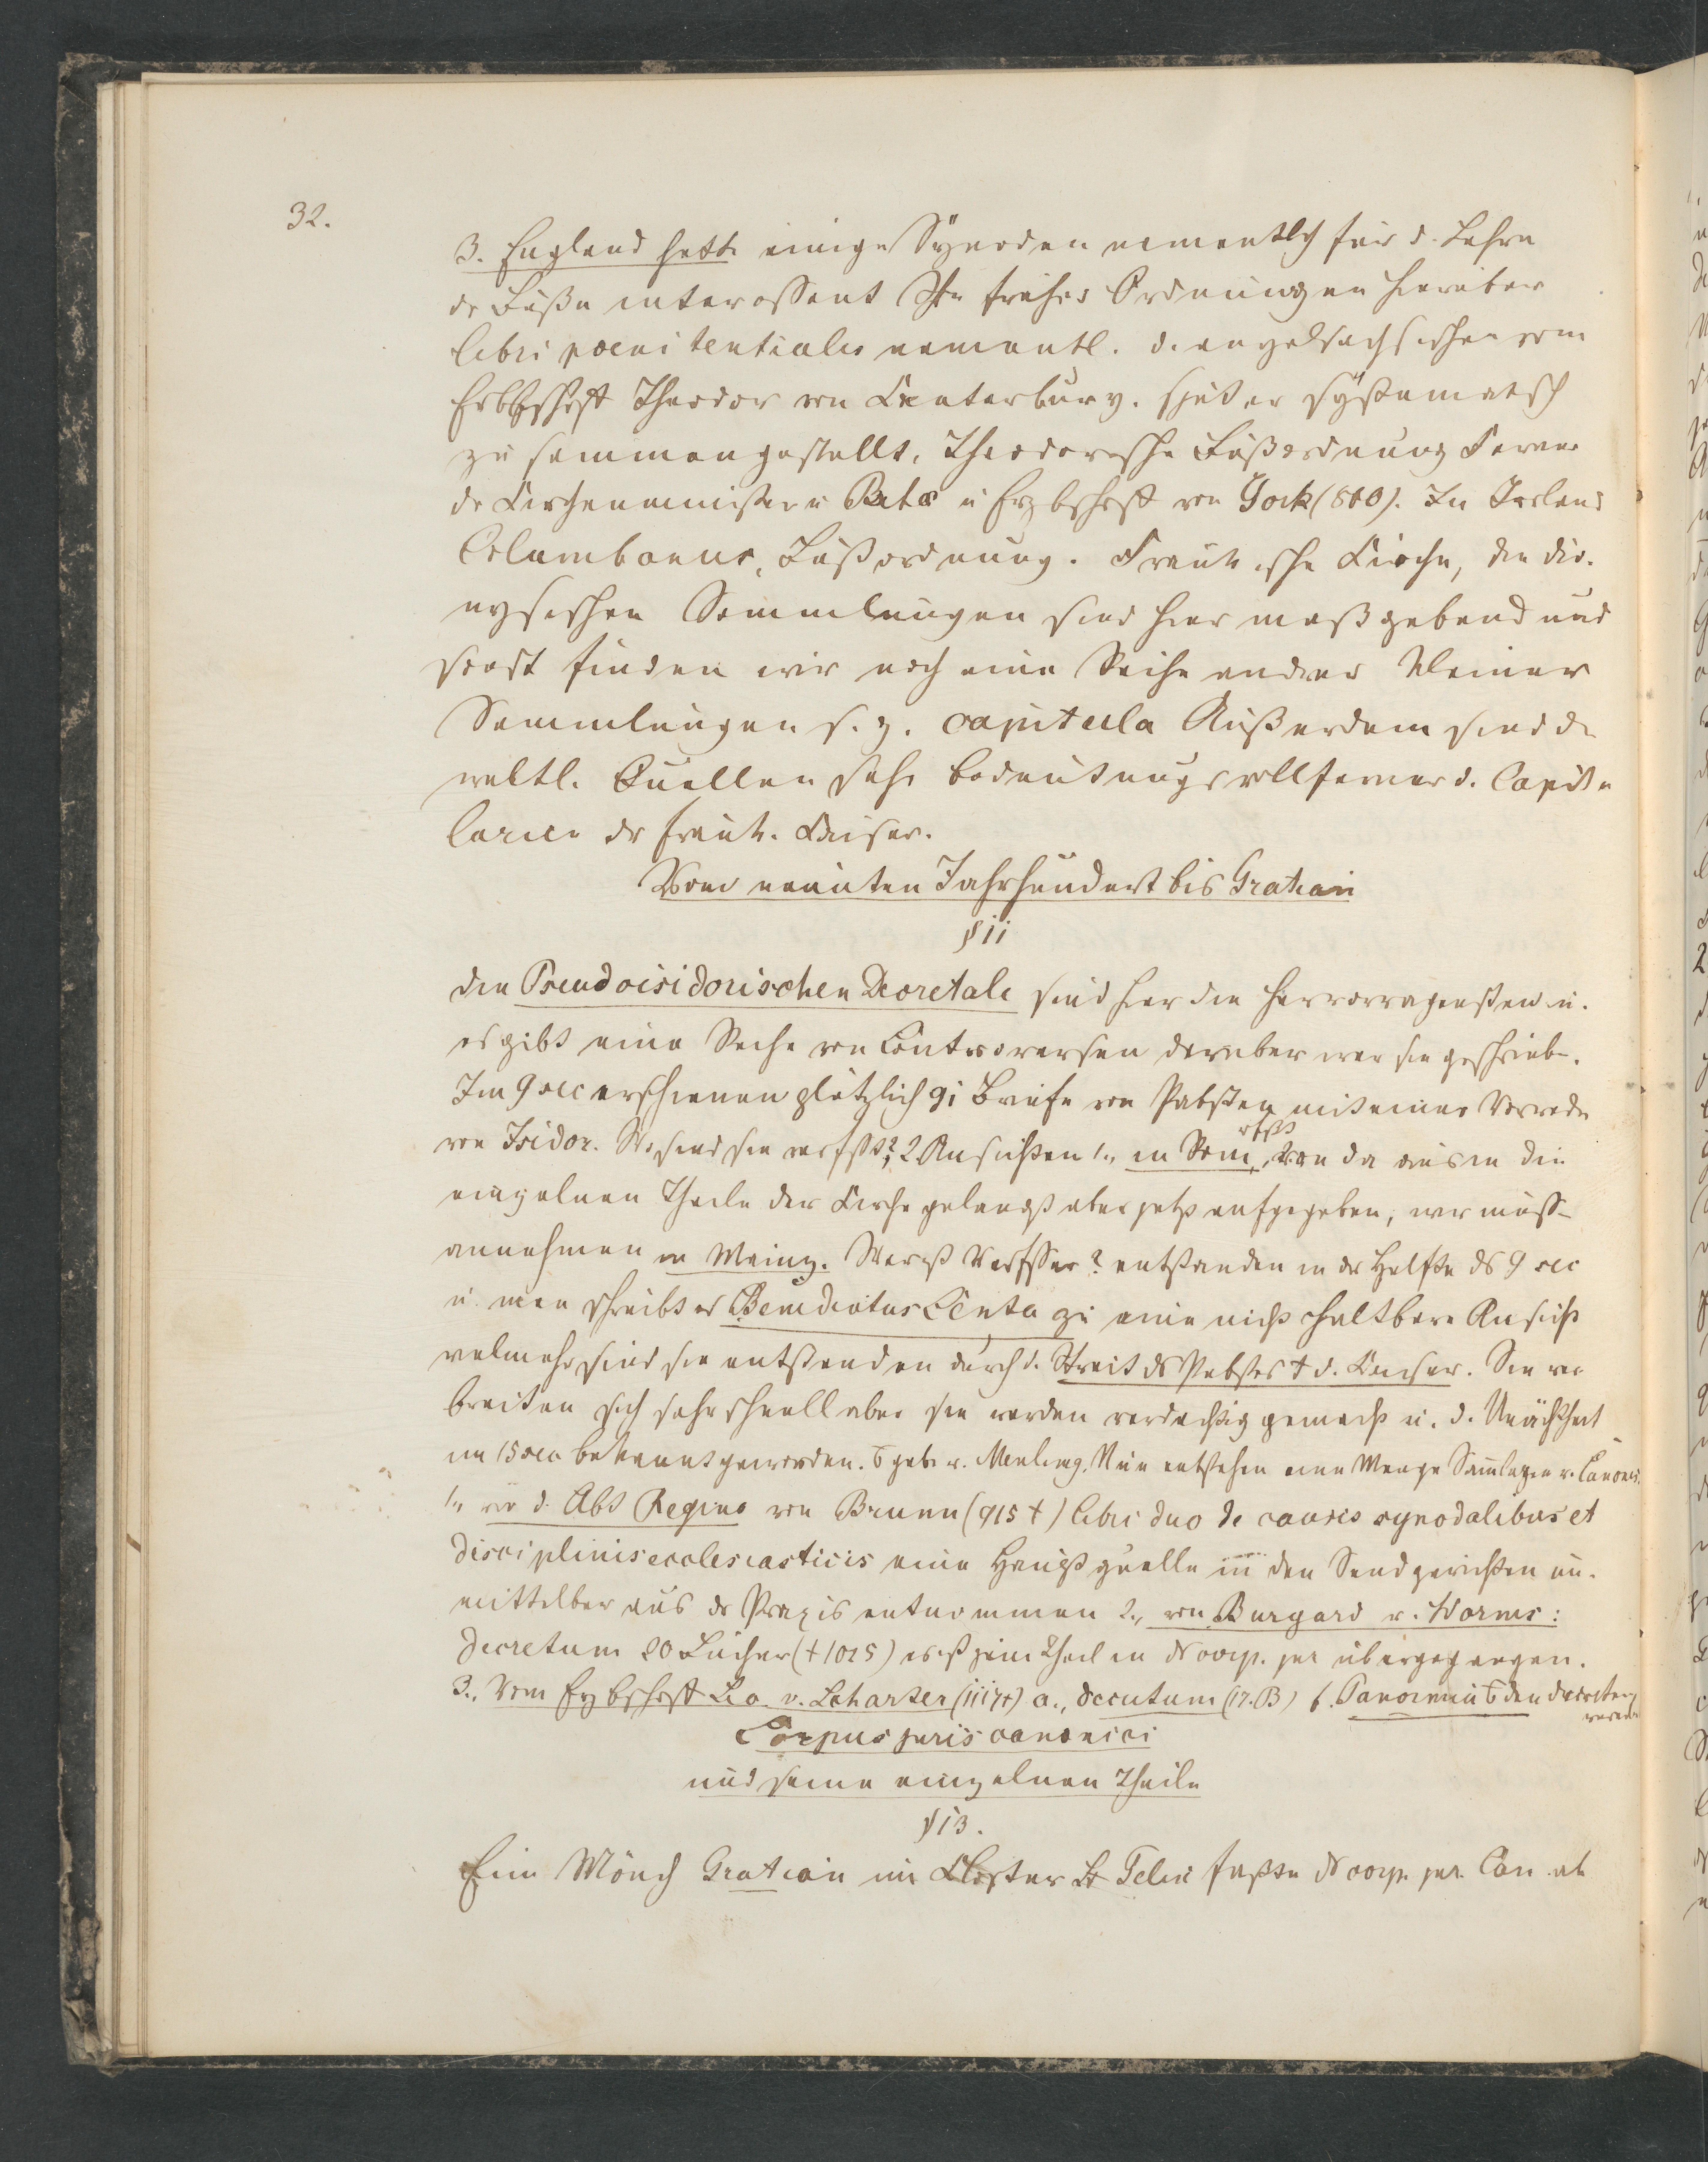 32.
3. England hatte einige Synoden namentlch für d. Lehre
dr Buße interessant Ihre frühes Ordnungen hierüber
libri poenitentiales namentl. d. angelsachsischen vom
Erbbschoff Theodor von Canterbury. später systematsch
zusammengestellt, Theodorische Bußordnung Ferner
dr Beda u Erzbschoff von York (800). In Irland
Columbanus, Bußordnung. Frenkische Kirche, die dio-
nysischen Sammlungen sind hier maßgebend und
sonst finden wir noch eine Reihe andrer kleiner
Sammlungen s. g. capitula Außerdem sind d.
weltl. Quellen sehr bedeutungsvoll ferner d. Capitu
larien dr frenk. Kaiser.
Vom neunten Jahrhundert bis Gratian
§ 11
Die Pseudoisidorischen Decretale sind hier die hervorragensten u.
es gibt eine Reihe von Controversen darüber wer sie geschrieb-.
Im 9 sec erschienen plötzlich 91 Briefe von Pabsten mit einer Vorrede
von Isidor. Wo sind sie verfßt? 2 Ansichten 1., in Rom, von da aus in die
einzelnen Theile der Kirche gelangt aber jetzt aufgegeben, wir müss-
annehmen in Mainz. Wer ist Verfsser? entstanden in dr Helfte ds 9 sec
u. man schreibt es Benedictus Levita zu eine nicht haltbare Ansicht
velmehr sind sie entstanden durch d. Streit ds Pabstes + d. Kaiser. Sie ver
breiten sich sehr schnell aber sie werden verdachtig gemacht u. d. Unächtheit
im 15 sec bekannt geworden. Nun entstehen eine Menge Samlngen v. Canones.
1., v d. Abt Regino von Prumm (915 +) libri duo de causis synodalibus et
disciplinis ecclesiasticis eine Hauptquelle in den Sendgerichten un-
mittelbar aus dr Praxis entnommen 2., von Burgard v. Worms:
Decretum 20 Bücher (+ 1025) es ist zum Theil in ds corp. jur übergegangen.
3., Vom Erzbschoff (1117+) a., decretum (17. B) b. Panormia
Corpus juris canonici
und seine einzelnen Theile
§ 13.
Ein Mönch Gratian im Kloster St Felix faßte ds corp. jur. Can ab